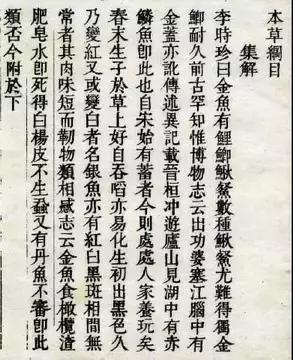 本草綱目
集解
李時珍曰金魚有鯉鯽鰍鰵數種鰍鰵尤難得獨金
鯽耐久前古罕知惟博物志云出功婆塞江腦中有
金蓋亦訛傳述異記載晉桓冲遊廬山見湖中有赤
鱗魚卽此也自宋始有蓄者今則處處人家養玩矣
春末生子於草上好自吞啗亦易化生初出黑色久
乃變紅又或變白者名銀魚亦有紅白黑斑相間無
常者其肉味短而韌物類相感志云金魚食橄欖渣
肥皂水卽死得白楊皮不生蝨又有丹魚不審卽此
類否今附於下